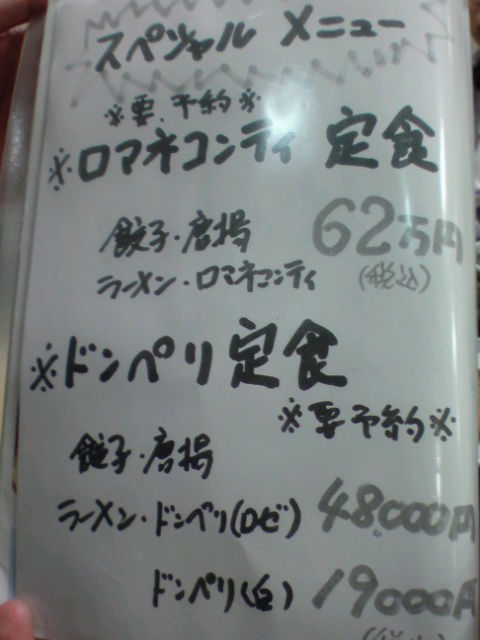 スペシャル メニュー
※要.予約※
※ロマネコンティ 定食
餃子・唐揚 62万円
ラーメン・ロマネコンティ (税込)
※ドンペリ定食
※要予約※
餃子・唐揚
ラーメン・ドンペリ(ロゼ) 48,000円
ドンペリ(白) 19000円